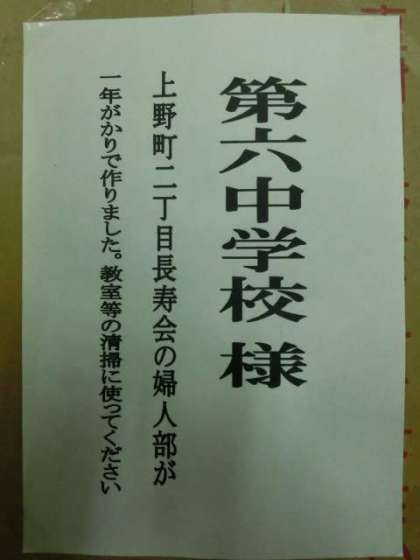 第六中学校 様
上野町二丁目長寿会の婦人部が
一年がかりで作りました。教室等の清掃に使ってください